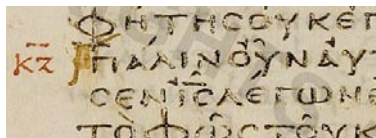 ΦΗΤΗϹΟΥΚΕΓ
Κ̅Ζ̅ ΠΑΛΙΝΟΥΝΑΥΤ
ϹΕΝΙ̅Ϲ̅ΛΕΓΩΝΕ
ΤΟΦΩϹΤΟΥΚ